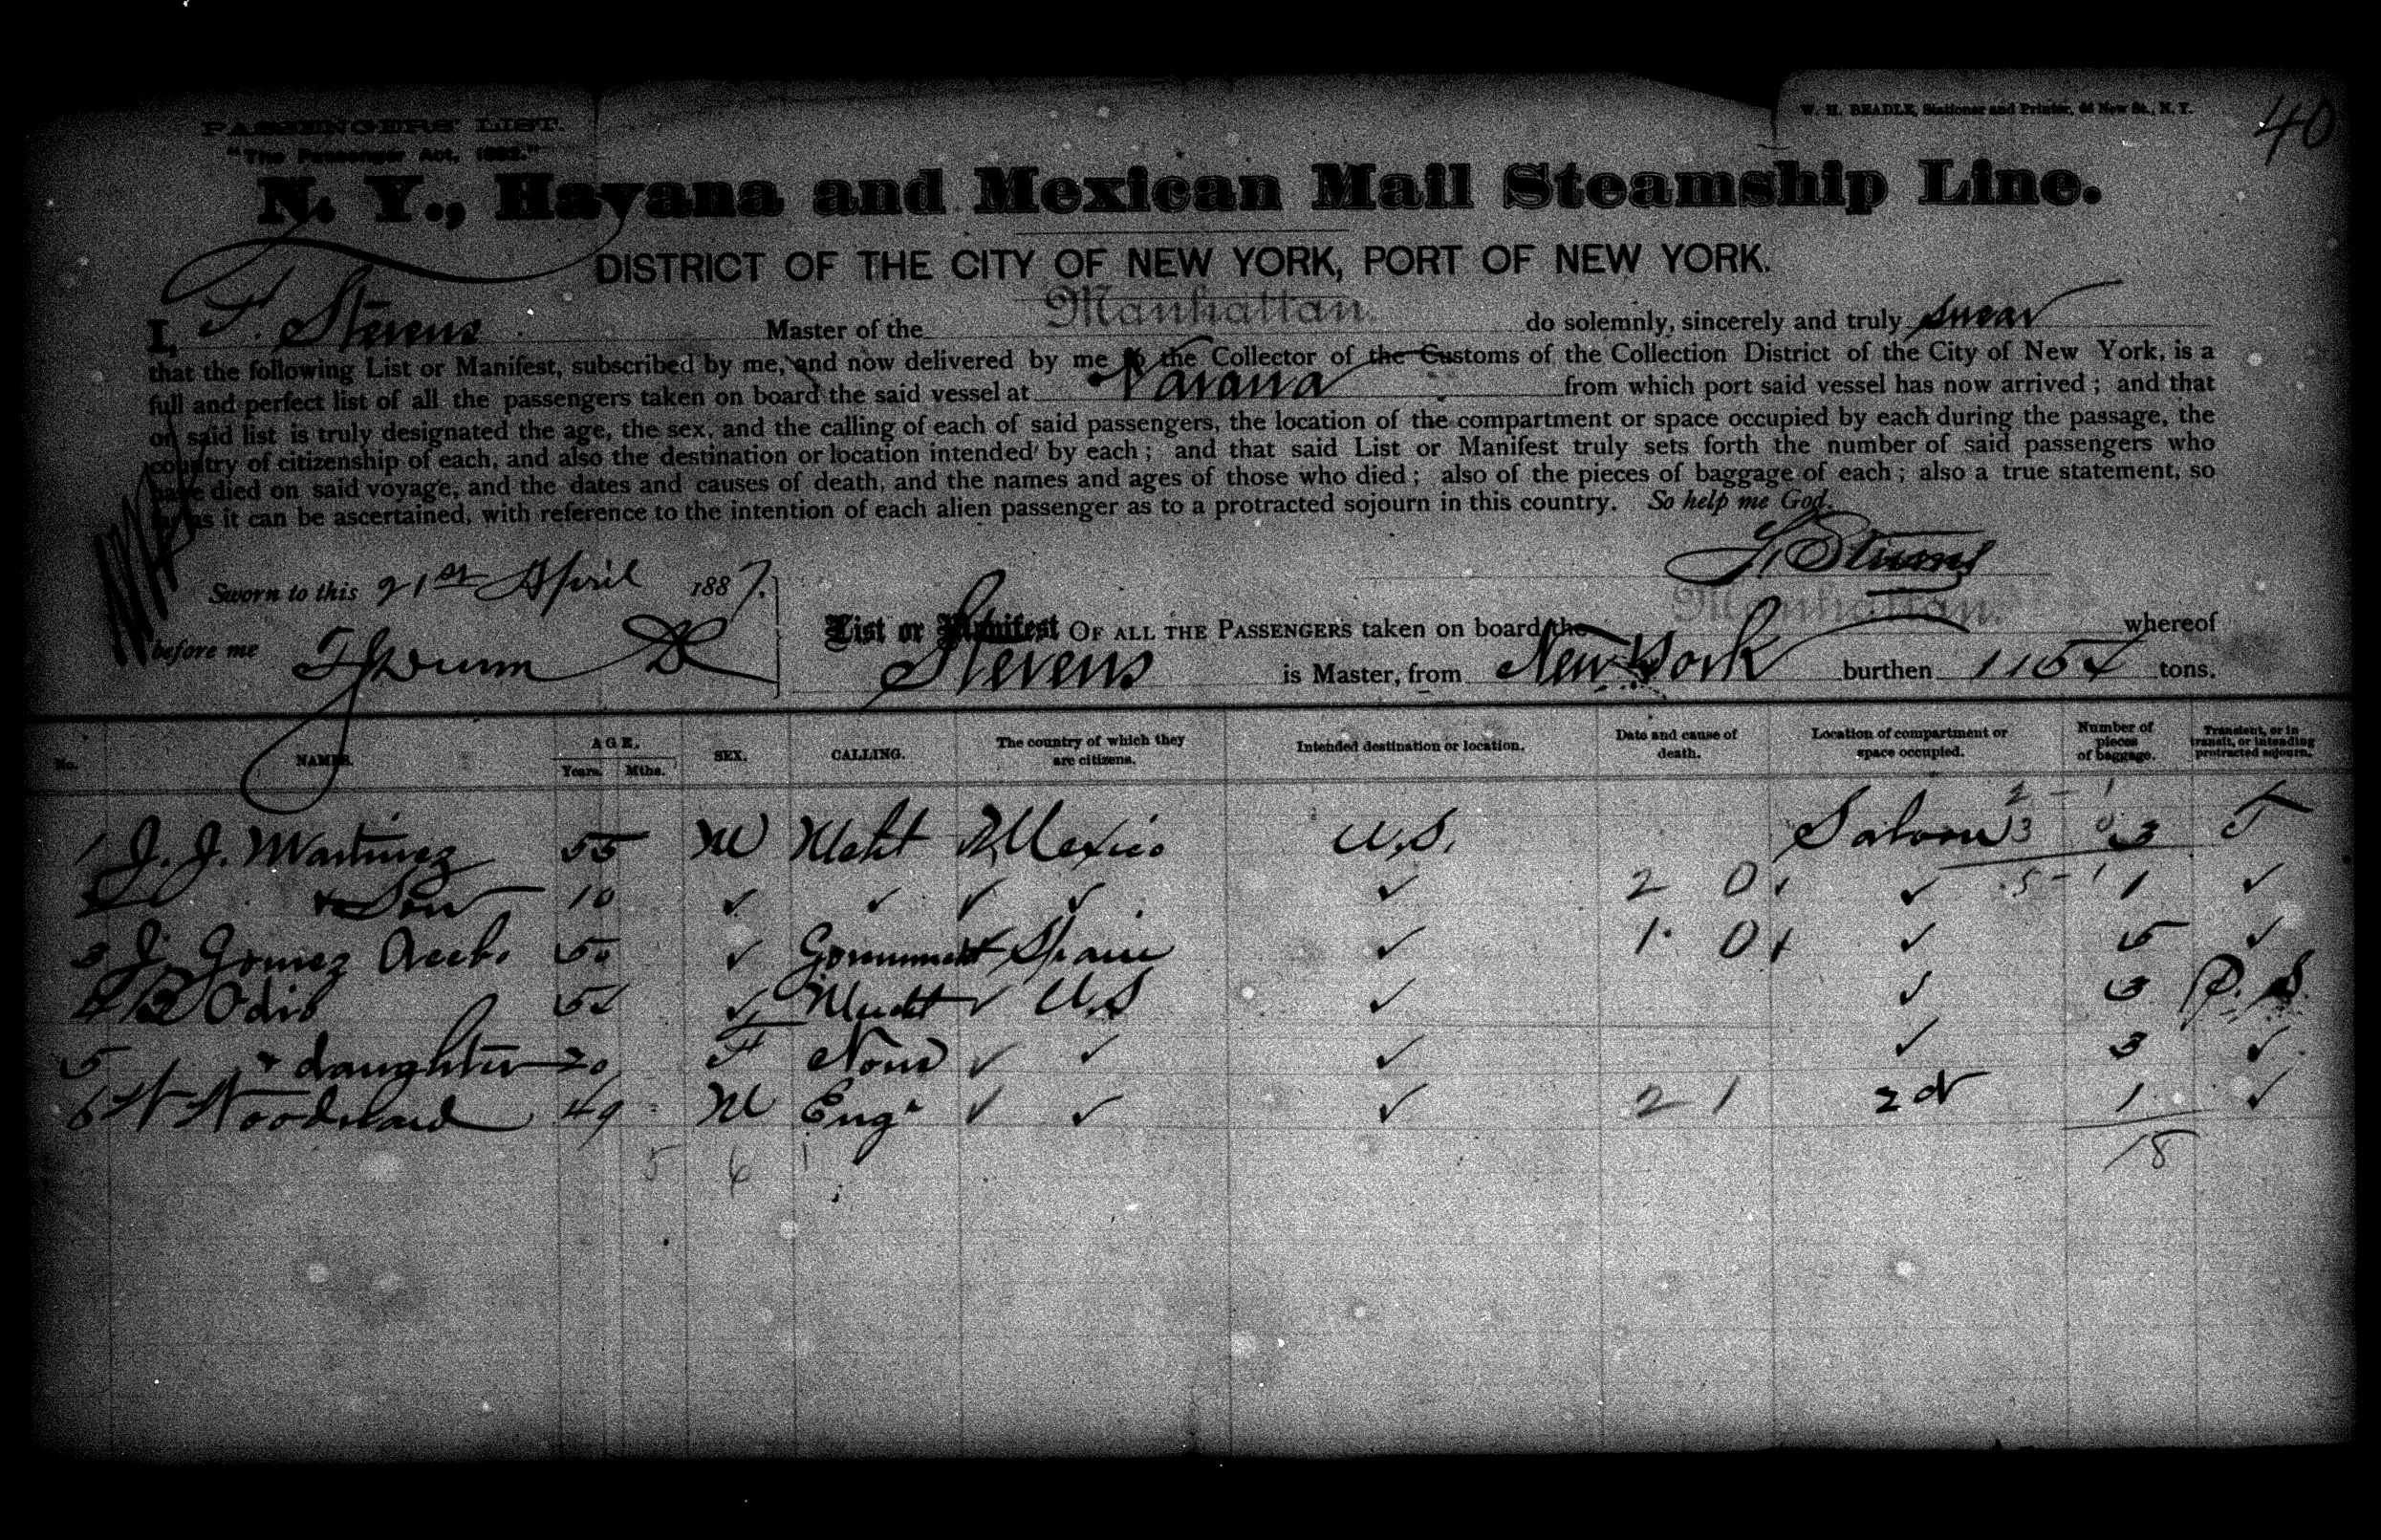 PASSENGERS' LIST.
"The Passenger Act, 1882."
W. H. BEADLE, Stationer and Printer, 66 New St., N. Y.
40
N. Y., Havana and Mexican Mail Steamship Line.
DISTRICT OF THE CITY OF NEW YORK, PORT OF NEW YORK.
I, F. Stevens Master of the Manhattan. do solemnly, sincerely and truly swear
that the following List or Manifest, subscribed by me, and now delivered by me to the Collector of the Customs of the Collection District of the City of New York, is a
full and perfect list of all the passengers taken on board the said vessel at Havana from which port said vessel has now arrived; and that
on said list is truly designated the age, the sex, and the calling of each of said passengers, the location of the compartment or space occupied by each during the passage, the
country of citizenship of each, and also the destination or location intended by each; and that said List or Manifest truly sets forth the number of said passengers who
have died on said voyage, and the dates and causes of death, and the names and ages of those who died; also of the pieces of baggage of each; also a true statement, so
far as it can be ascertained, with reference to the intention of each alien passenger as to a protracted sojourn in this country. So help me God.
F. Stevens
Sworn to this 21st April 1887.
before me
List or Manifest OF ALL THE PASSENGERS taken on board the Manhattan. whereof
Stevens is Master, from New York burthen 115 tons.
No. NAMES. AGE. Years. Mths. SEX. CALLING. The country of which they are citizens. Intended destination or location. Date and cause of death. Location of compartment or space occupied. Number of pieces of baggage. Transient, or in transit, or intending protracted sojourn.
2 - 1
1 J. J. Martinez 55 M Mcht Mexico U.S. Saloon 3 0 3 T
2 " + Son 10 ✓ ✓ ✓ ✓ ✓ 2 0 ✓ 5 - 1 1 ✓
3 J. Gomez 50 ✓ Government Spain ✓ 1 0 ✓ 5 ✓
4 Odio 52 ✓ Mercht ✓ U.S ✓ ✓ 3 P. S.
5 " + daughter 20 F None ✓ ✓ ✓ ✓ 3 ✓
6 Woodward 49 M Engr ✓ ✓ ✓ 2 1 2d 1 ✓
5 6 1 18